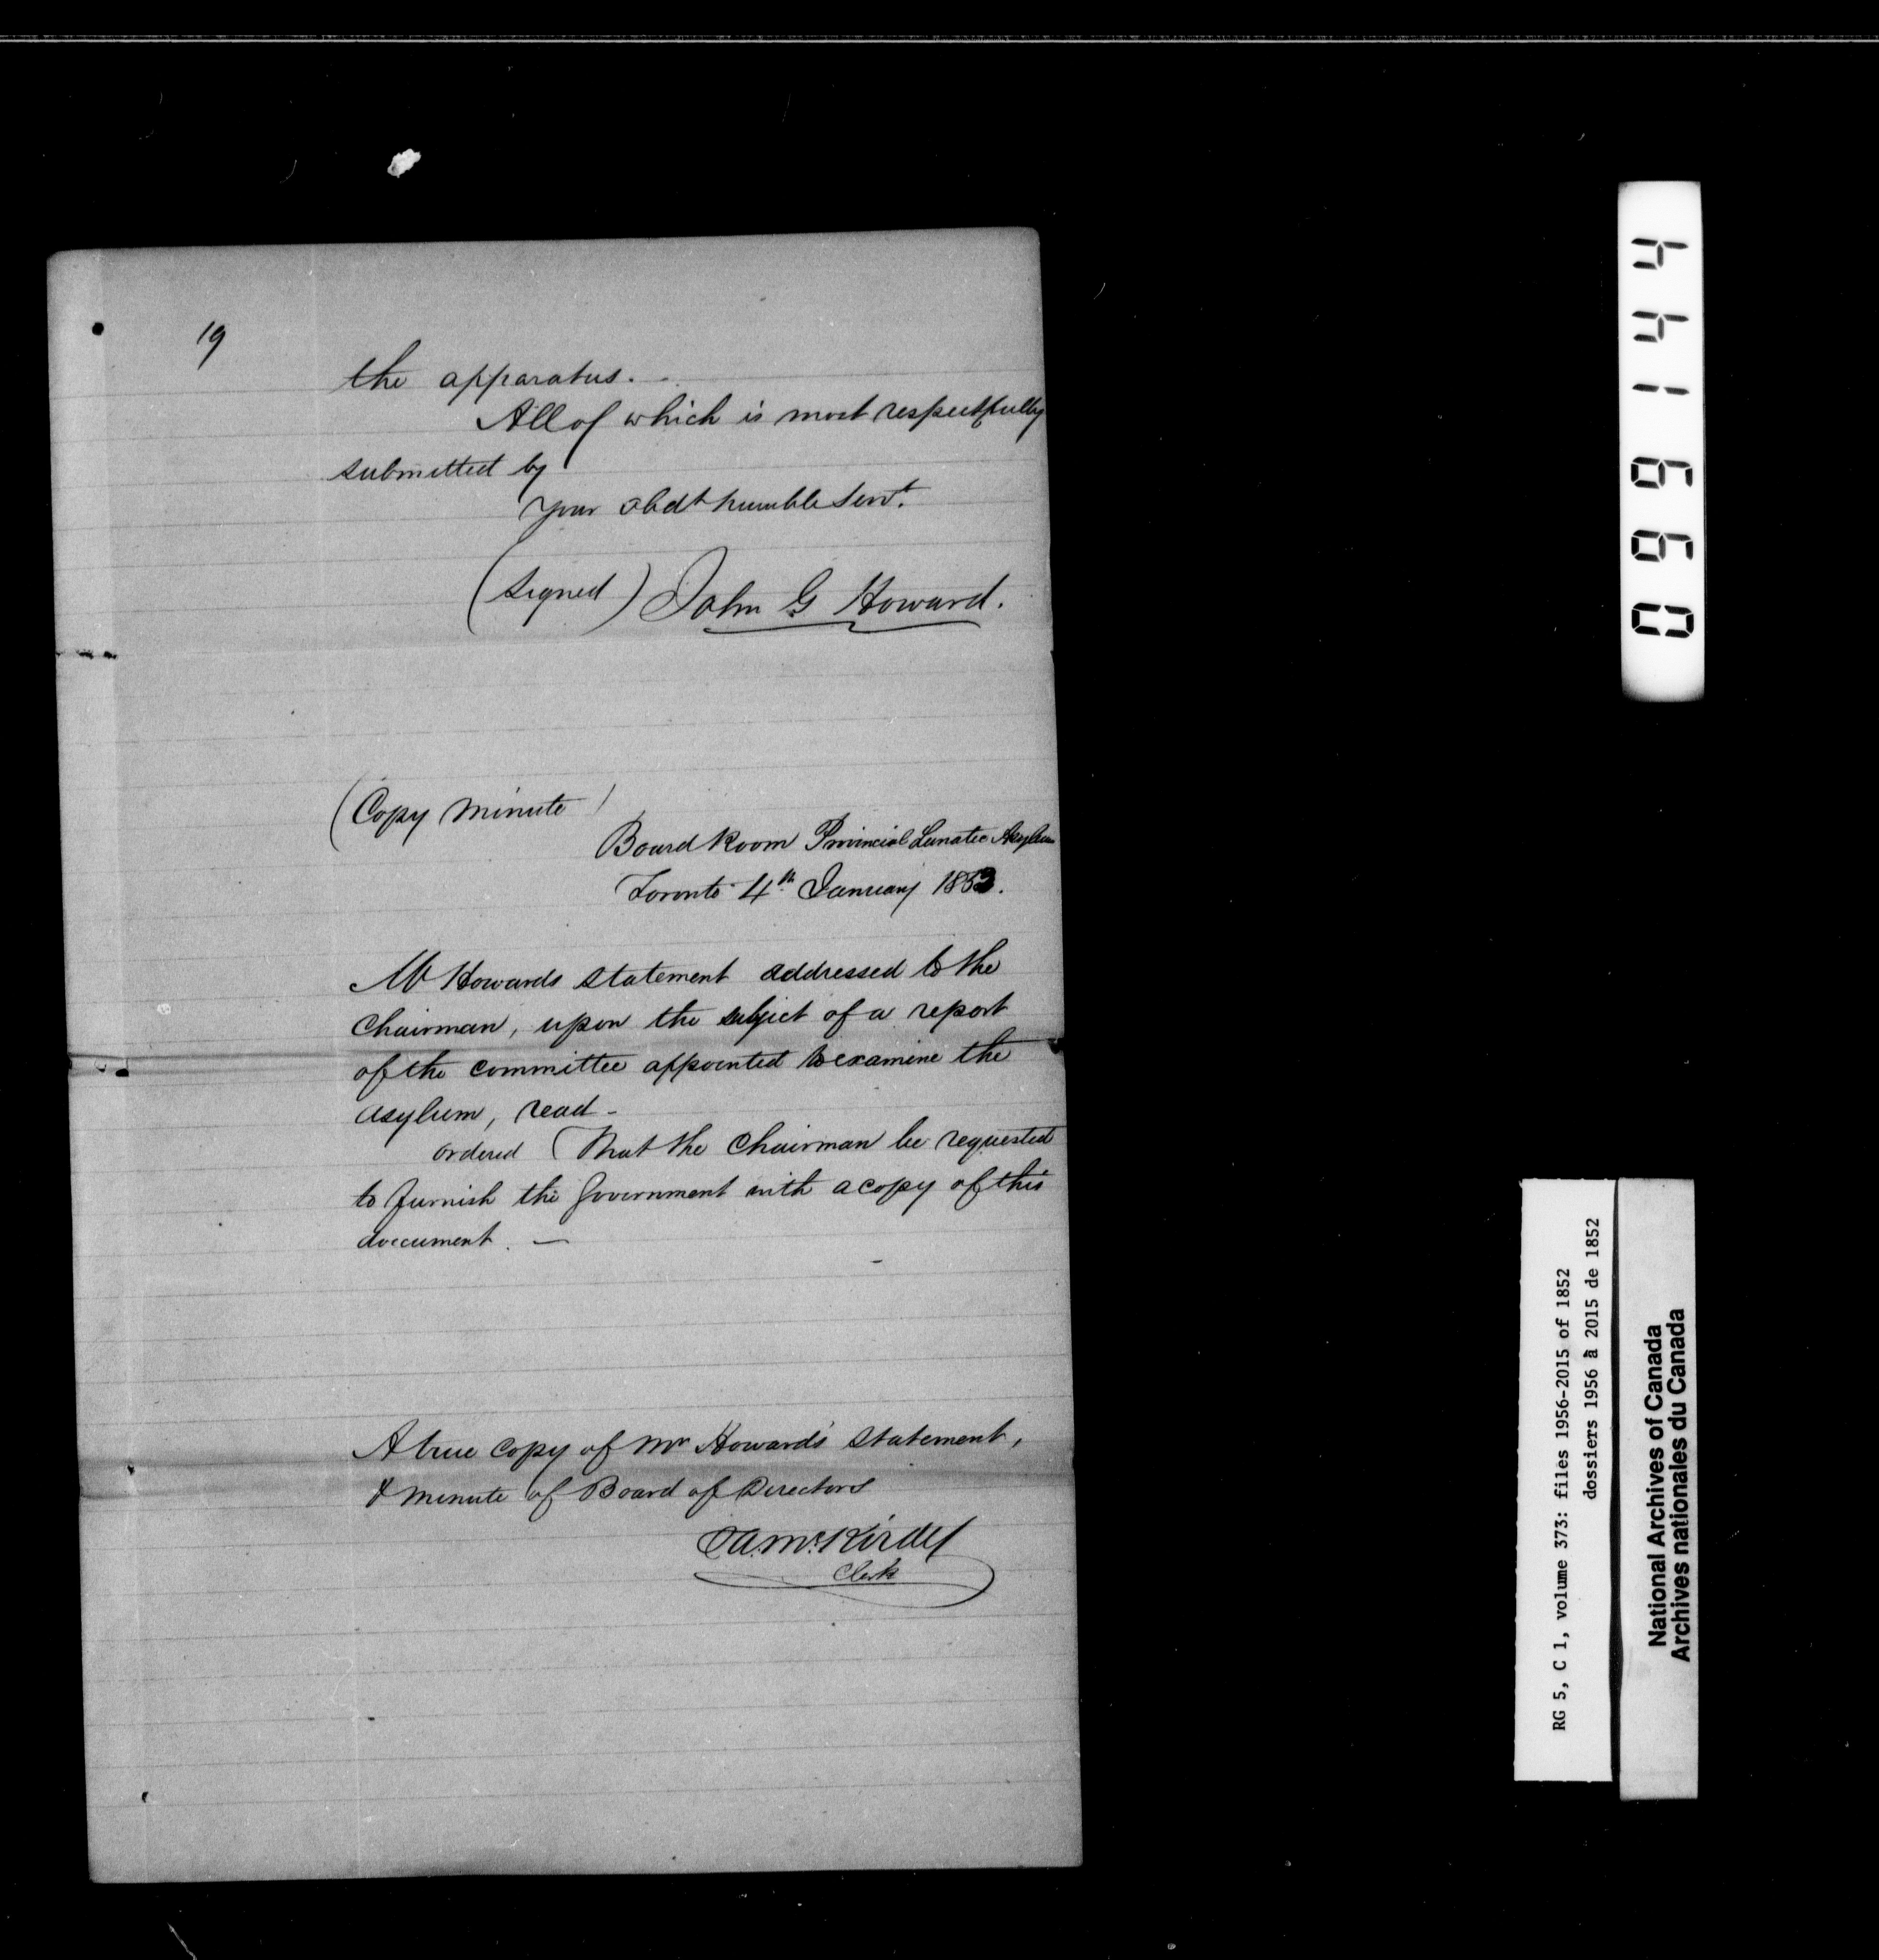 19
the apparatus.
All of which is most respectfully
submitted by
your obdt humble servt.
(signed) John G Howard.
(Copy Minute)
Board Room Provincial Lunatic Asylum
Toronto 4th January 1853.
Mr Howards statement addressed to the
Chairman, upon the subject of a report
of the committee appointed to examine the
asylum, read -
ordered (That the Chairman be requested
to furnish the Government with a copy of this
doccument. —
A true copy of Mr Howards statement,
& minute of Board of Directors
Clerk
099144
RG 5, C 1, volume 373: files 1956-2015 of 1852
dossiers 1956 à 2015 de 1852
National Archives of Canada
Archives nationales du Canada